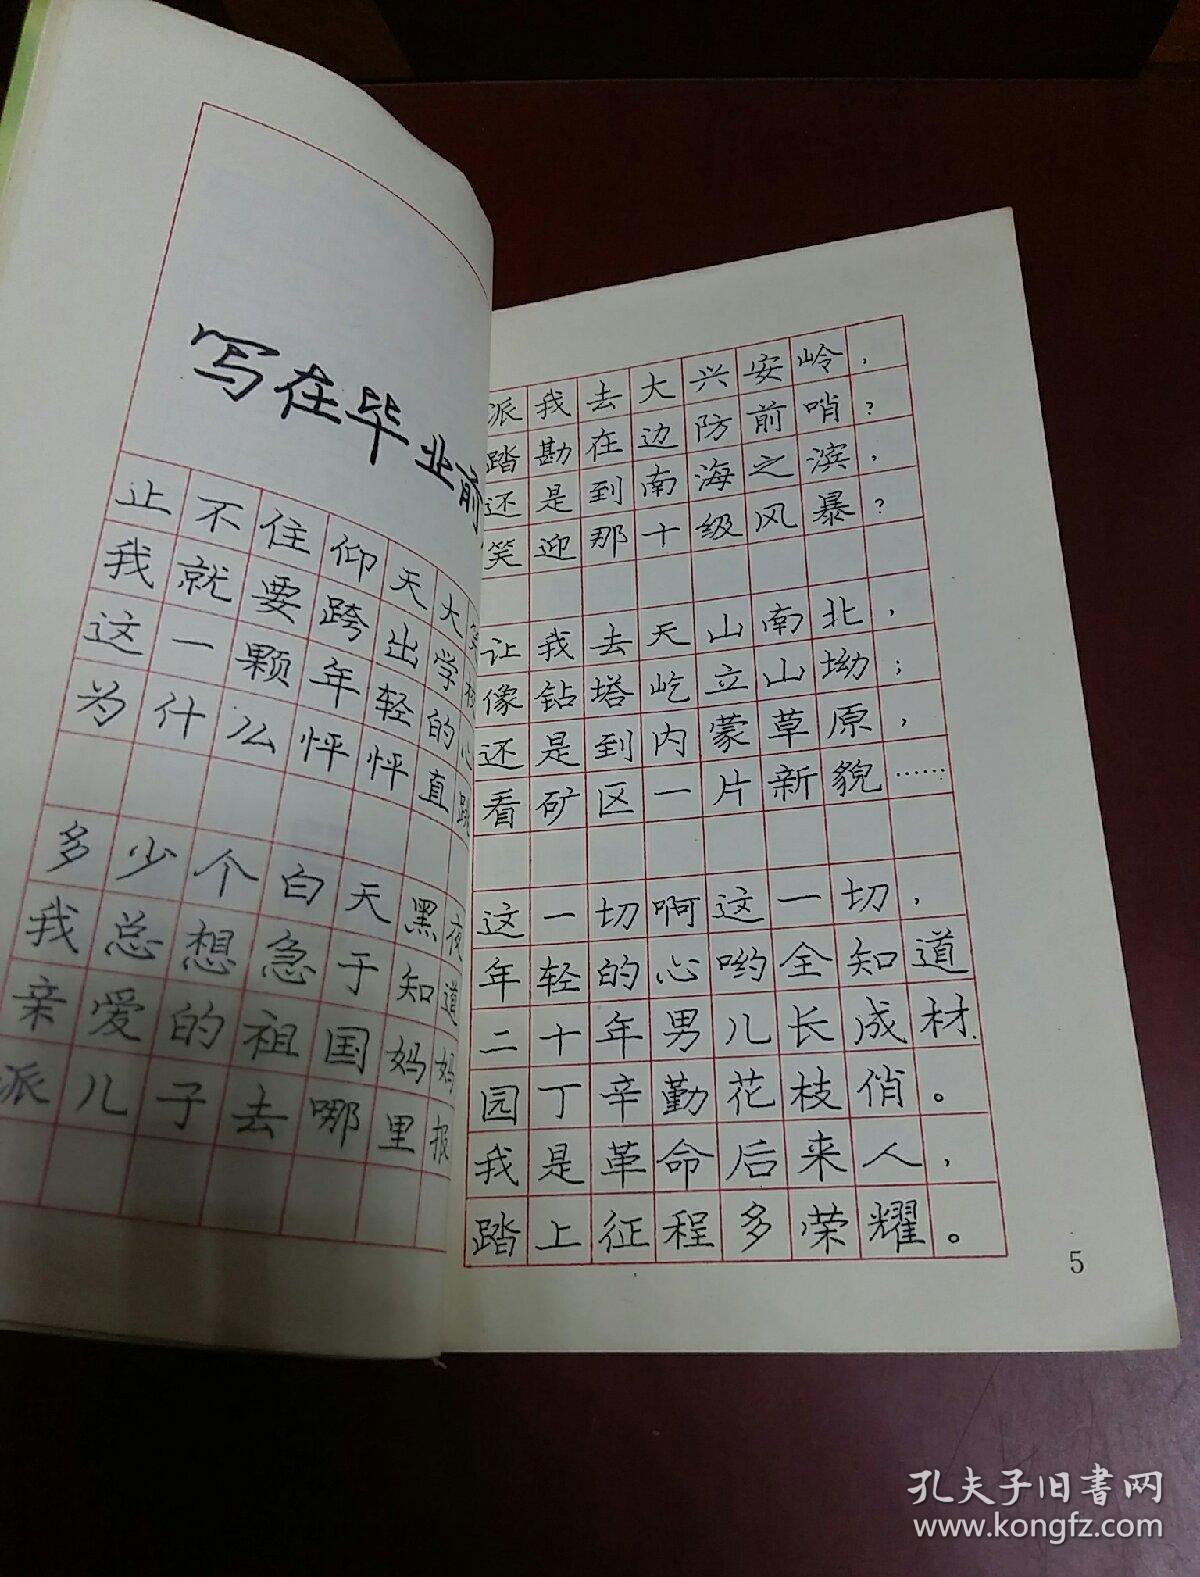 写在毕业前
止不住仰天大笑
我就要跨出学校
这一颗年轻的心
为什么怦怦直跳
多少个白天黑夜
我总想急于知道
亲爱的祖国妈妈
派儿子去哪里报
派我去大兴安岭，
踏勘在边防前哨？
还是到南海之滨，
笑迎那十级风暴？
让我去天山南北，
像钻塔屹立山坳；
还是到内蒙草原，
看矿区一片新貌……
这一切啊这一切，
年轻的心哟全知道
二十年男儿长成材．
园丁辛勤花枝俏。
我是革命后来人，
踏上征程多荣耀。
5
孔夫子旧书网
www.kongfz.com